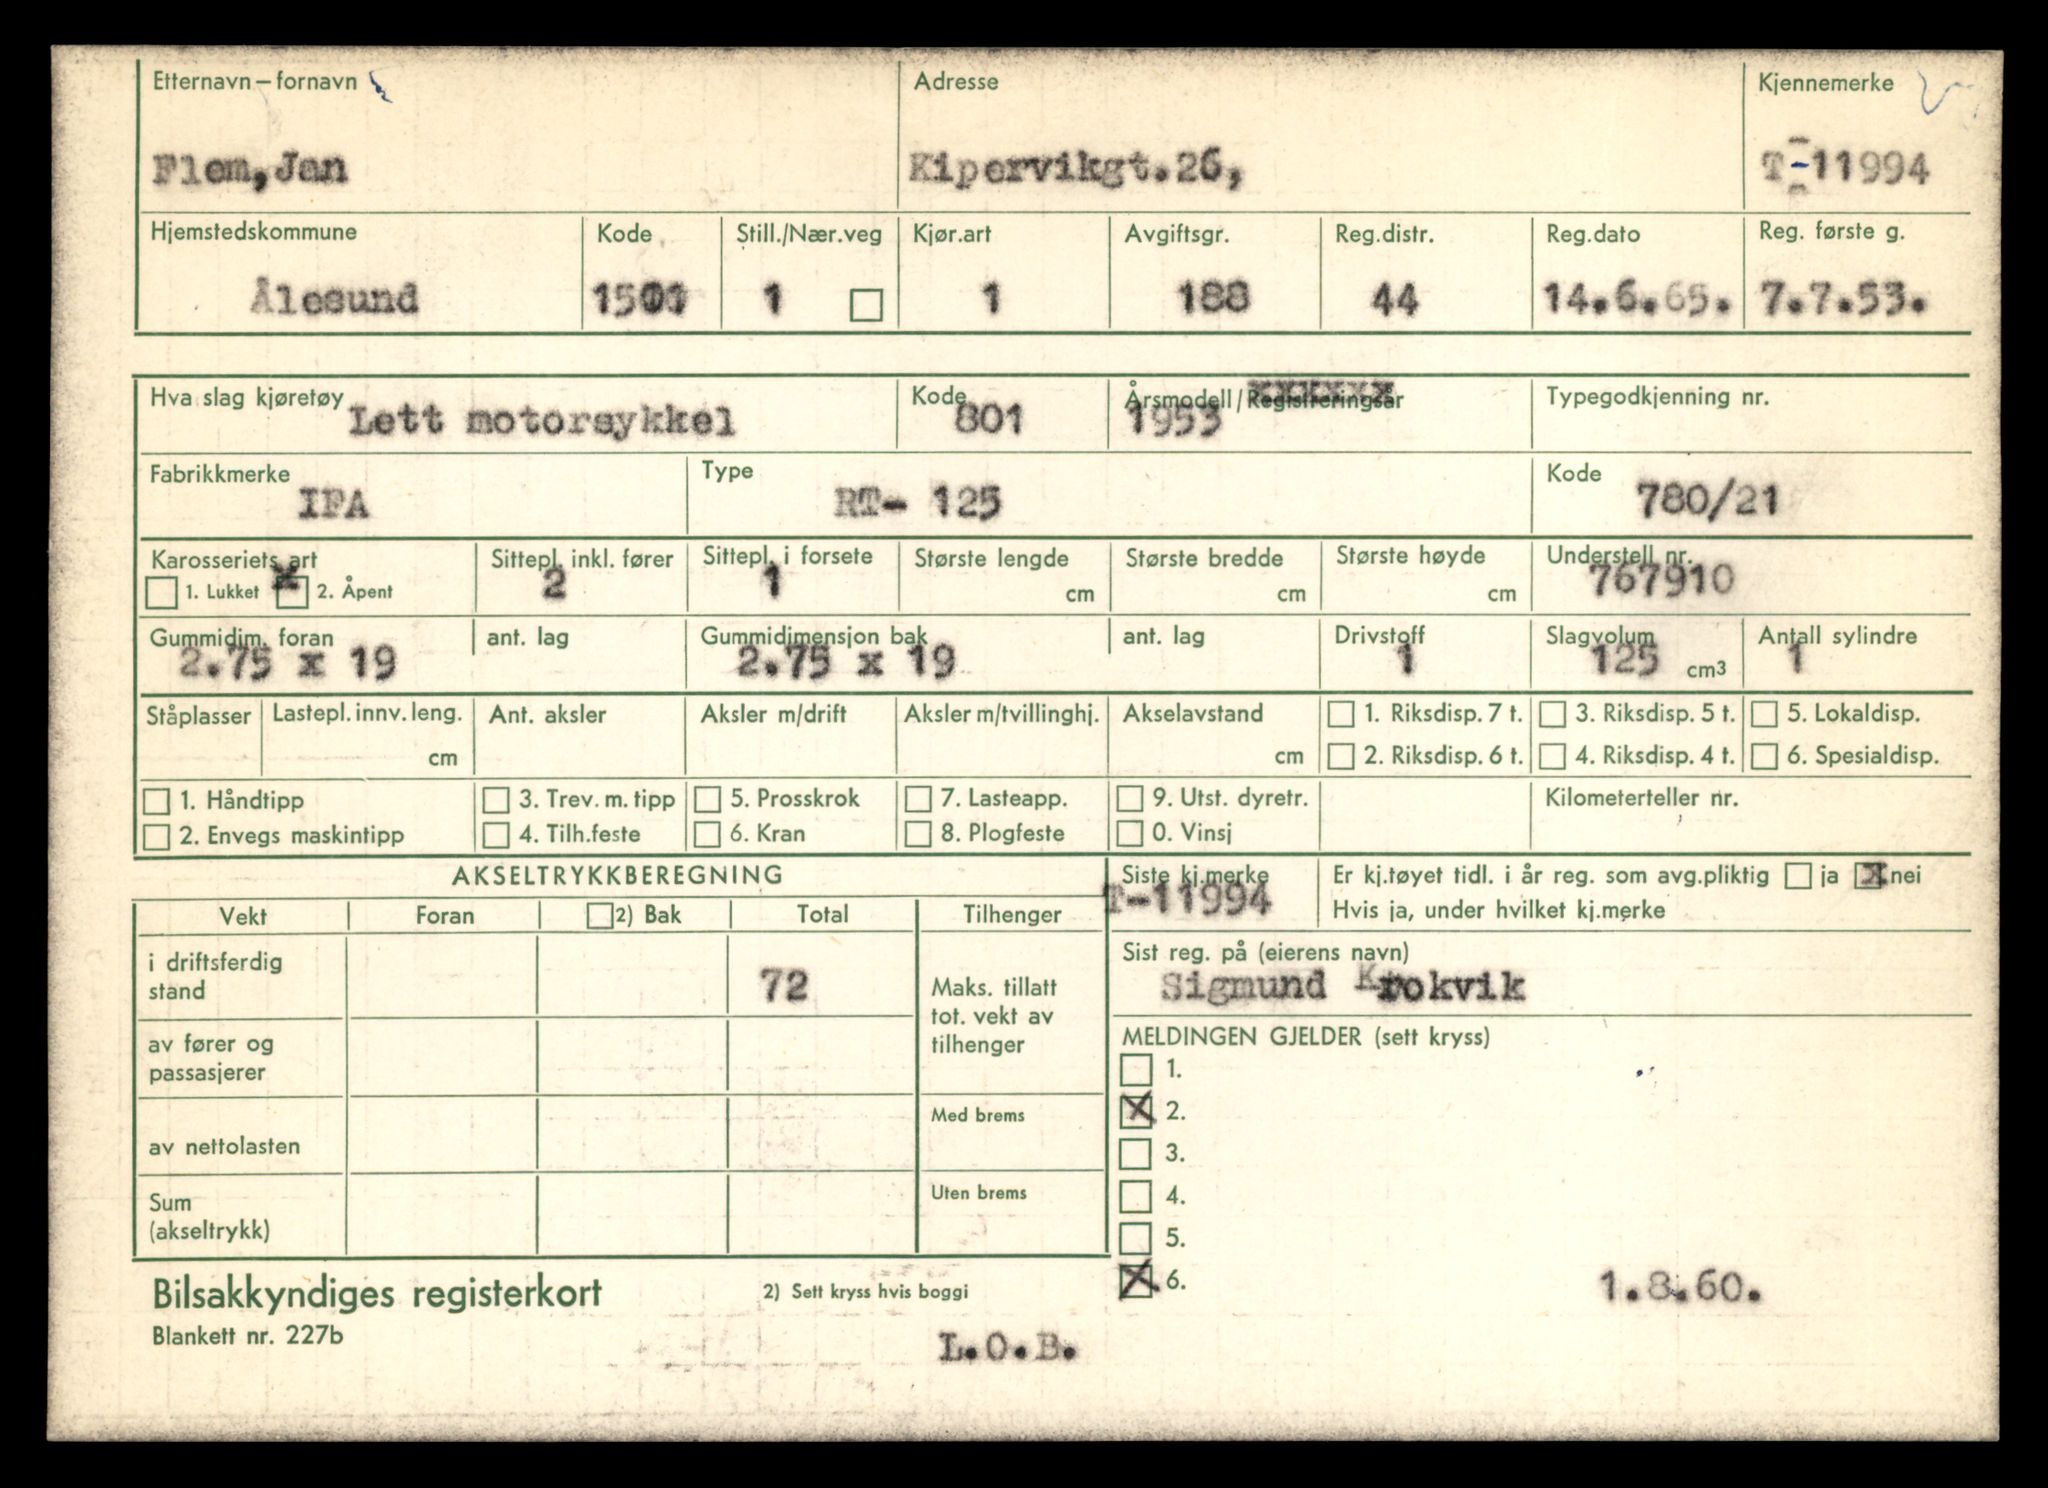 Etternavn – fornavn Adresse Kjennemerke
Flem, Jan Kipervikgt. 26, T-11994
Hjemstedskommune Kode Still./Nær.veg Kjør.art Avgiftsgr. Reg.distr. Reg.dato Reg. første g.
Ålesund 1501 1 1 188 44 14.6.65. 7.7.53.
Hva slag kjøretøy Kode Årsmodell/Registreringsår Typegodkjenning nr.
Lett motorsykkel 801 1953
Fabrikkmerke Type Kode
IFA RT- 125 780/21
Karosseriets art Sittepl. inkl. fører Sittepl. i forsete Største lengde Største bredde Største høyde Understell nr.
1. Lukket x 2. Åpent 2 1 cm cm cm 767910
Gummidim. foran ant. lag Gummidimensjon bak ant. lag Drivstoff Slagvolum Antall sylindre
2.75 x 19 2.75 x 19 1 125 cm3 1
Ståplasser Lastepl. innv. leng. Ant. aksler Aksler m/drift Aksler m/tvillinghj. Akselavstand 1. Riksdisp. 7 t. 3. Riksdisp. 5 t. 5. Lokaldisp.
cm cm 2. Riksdisp. 6 t. 4. Riksdisp. 4 t. 6. Spesialdisp.
1. Håndtipp 3. Trev. m. tipp 5. Prosskrok 7. Lasteapp. 9. Utst. dyretr. Kilometerteller nr.
2. Envegs maskintipp 4. Tilh.feste 6. Kran 8. Plogfeste 0. Vinsj
AKSELTRYKKBEREGNING Siste kj.merke Er kj.tøyet tidl. i år reg. som avg.pliktig ja x nei
T-11994 Hvis ja, under hvilket kj.merke
Vekt Foran 2) Bak Total Tilhenger
Sist reg. på (eierens navn)
Sigmund Krokvik
i driftsferdig
stand 72
Maks. tillatt
tot. vekt av
tilhenger
av fører og
passasjerer
MELDINGEN GJELDER (sett kryss)
1.
X 2.
Med brems
av nettolasten
3.
4.
Uten brems
Sum
(akseltrykk)
5.
X 6. 1.8.60.
Bilsakkyndiges registerkort 2) Sett kryss hvis boggi
Blankett nr. 227b
L.O.B.